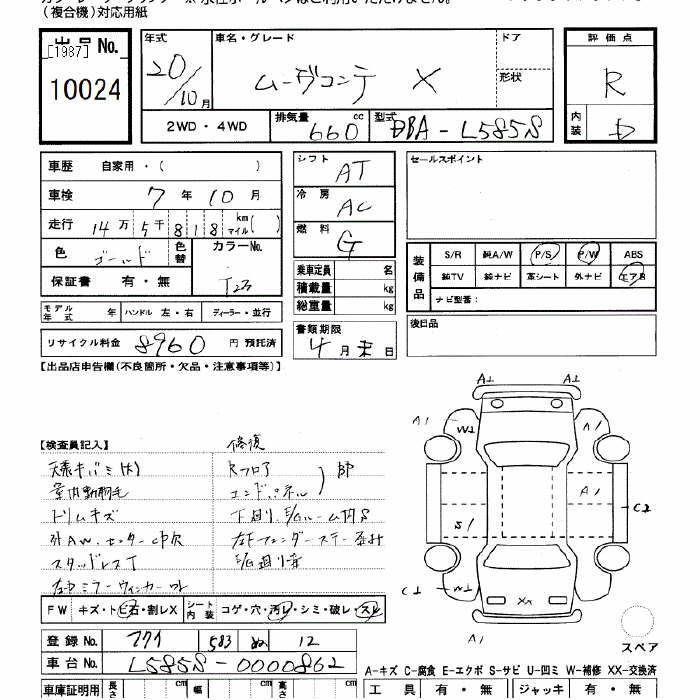 (複合機)対応用紙
出品No.
[1987]
10024
年式
20/10月
車名・グレード
ムーヴコンテ X
ドア
形状
2WD・4WD
排気量
660 cc
型式
DBA-L585S
評価点
R
内装
D
車歴 自家用・( )
車検 7年10月
走行 14万5千818 km マイル( )
色 ゴールド
色替
カラーNo.
T23
保証書 有・無
モデル年式 年
ハンドル 左・右
ディーラー・並行
リサイクル料金 8960 円 預託済
シフト AT
冷房 AC
燃料 G
乗車定員 名
積載量 kg
総重量 kg
書類期限
4月末日
セールスポイント
装備品
S/R 純A/W P/S P/W ABS
純TV 純ナビ 革シート 外ナビ エアB
ナビ型番:
後日品
【出品店申告欄(不良箇所・欠品・注意事項等)】
【検査員記入】
修復
Rフロア
エンドパネル
室内動物毛
トリムキズ
スタッドレスT
FW キズ・トビ石・割レX
シート内装 コゲ・穴・汚レ・シミ・破レ・スレ
登録No.
583 ぬ 12
車台No. L585S-0000862
車庫証明用 長さ cm 幅 cm 高さ cm
A1 A1
A1 W1 A1
A1
S1
C2
C2 W1
XX
A1
スペア
A-キズ C-腐食 E-エクボ S-サビ U-凹ミ W-補修 XX-交換済
工具 有・無 ジャッキ 有・無